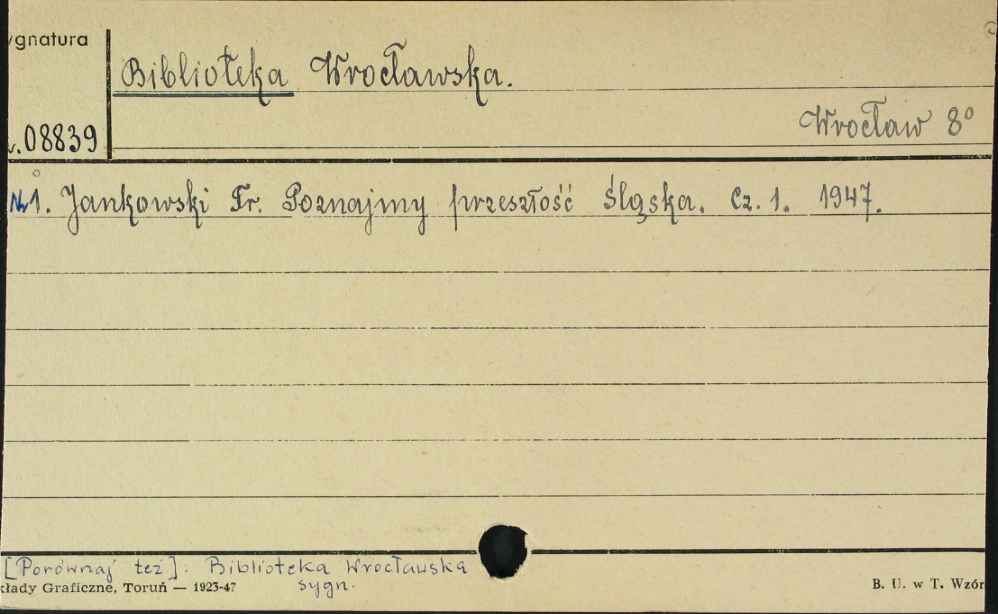 ygnatura
Biblioteka Wrocławska.
Wrocław 8°
v. 08839
№1. Jankowski Fr. Poznajmy przeszłość Śląska. Cz. 1. 1947.
[Porównaj też]. Biblioteka Wrocławska
sygn.
kłady Graficzne, Toruń — 1923-47
B. U. w T. Wzór